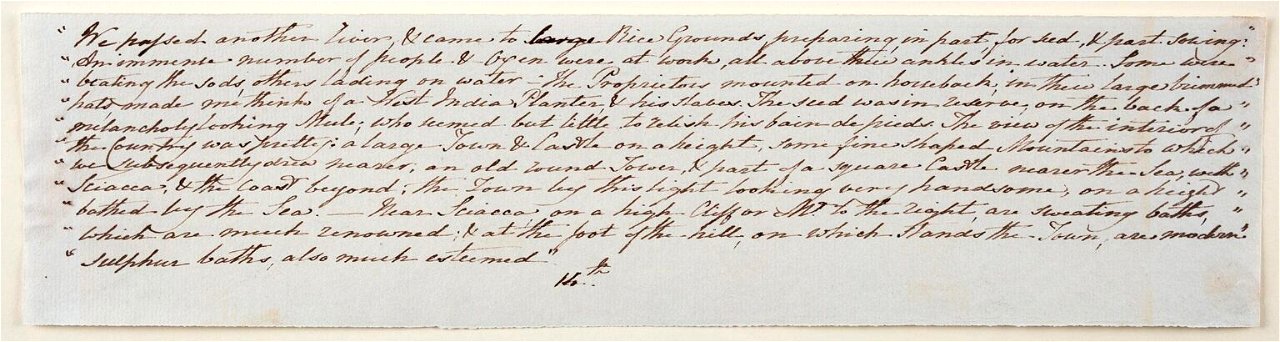 " We passed another River, & came to large Rice Grounds preparing, in part, for seed, & part sowing: "
" An immense number of people & Oxen were at work, all above their ankles in water. Some were "
" beating the sods, others lading on water. The Proprietors mounted on horseback, in their large brimmed "
" hats, made me think of a West India Planter & his slaves. The seed was in reserve, on the back of a "
" melancholy looking Mule, who seemed but little to relish his bain de pieds. The view of the interior of "
" the Country was pretty: a large Town & Castle on a height, some fine shaped Mountains to which "
" we subsequently drew nearer, an old round Tower, & part of a square Castle nearer the Sea, with "
" Sciacca, & the Coast beyond; the Town by this light looking very handsome, on a height "
" bathed by the Sea. — Near Sciacca, on a high Cliff or Mt. to the right, are sweating baths, "
" which are much renowned; & at the foot of the hill, on which stands the Town, are modern "
" sulphur baths, also much esteemed "
14th.